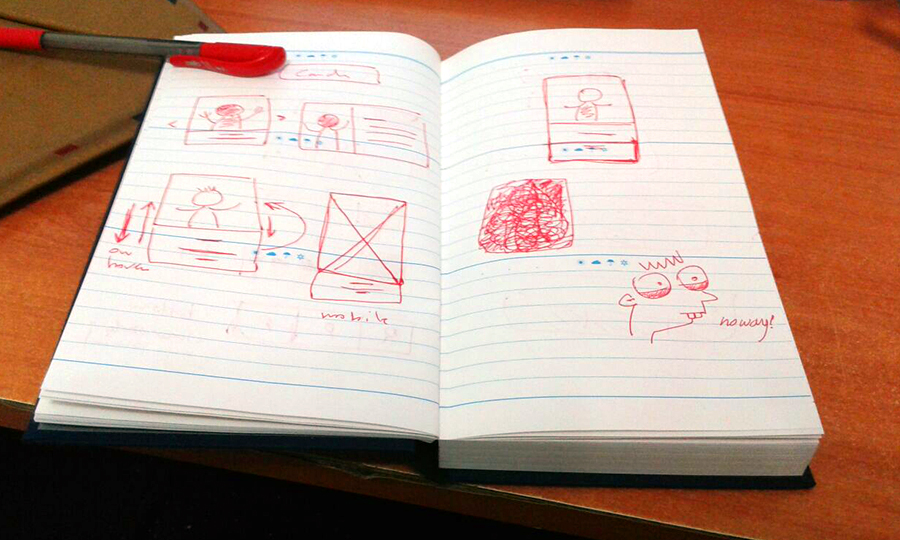 Cards
on
hover
mobile
no way!